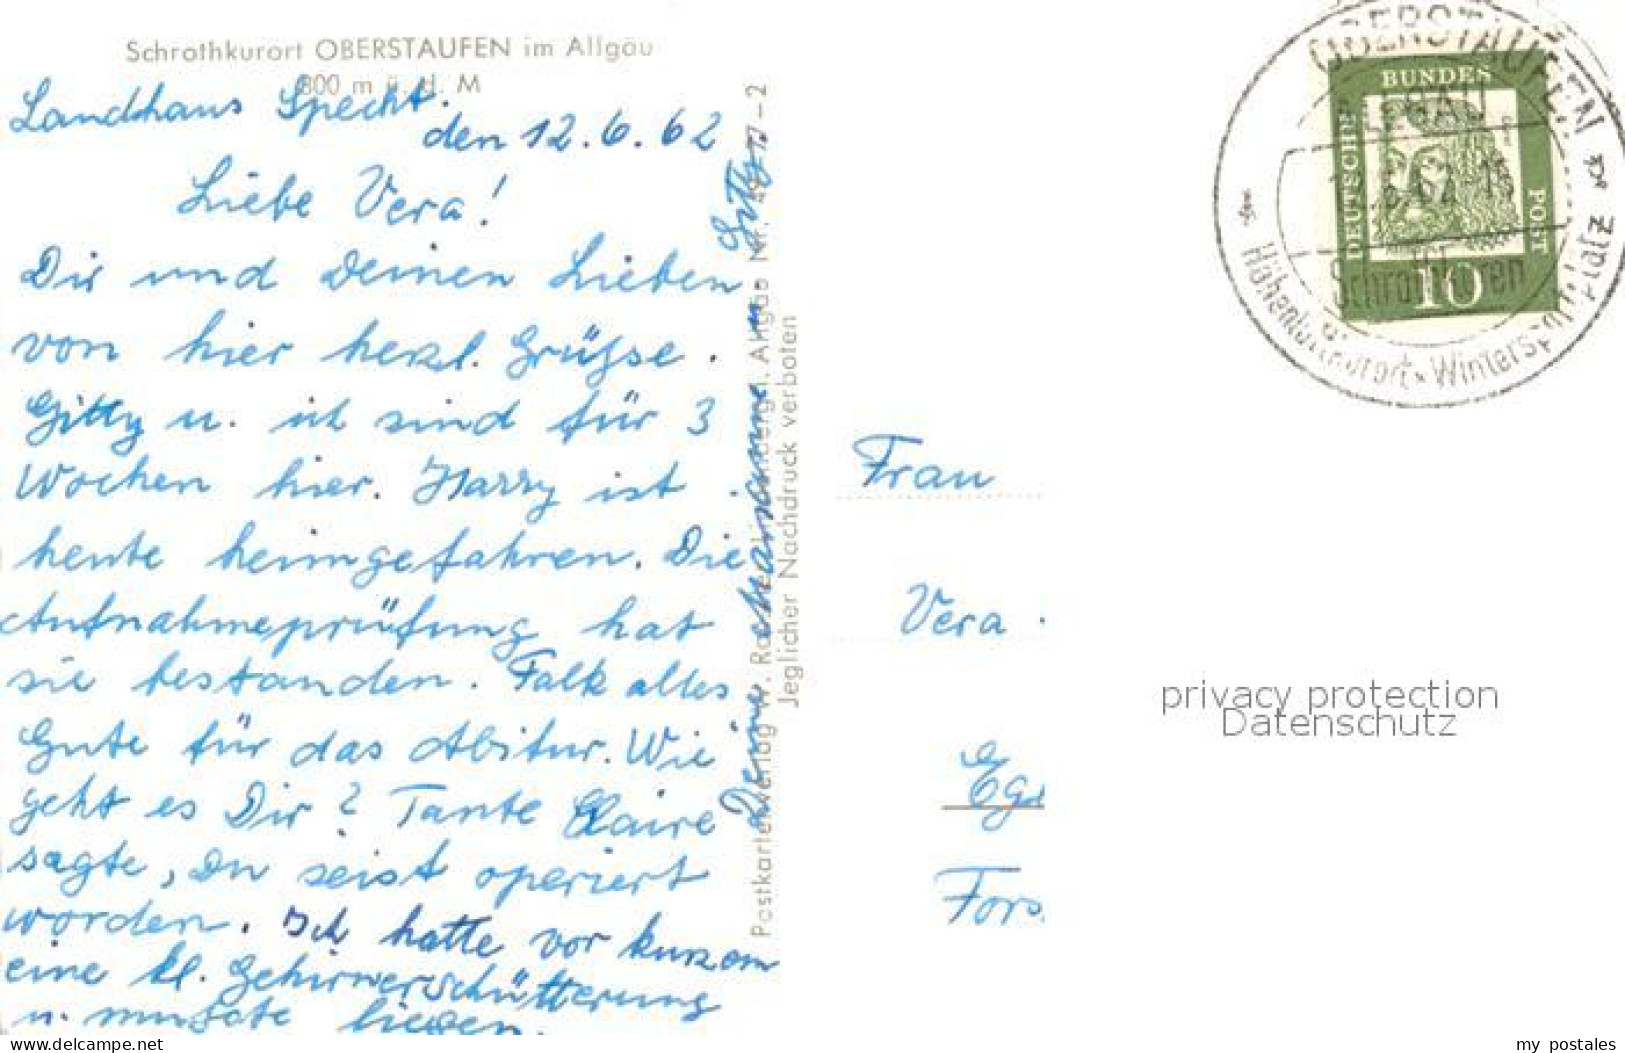 Schrothkurort OBERSTAUFEN im Allgäu
800 m ü. d. M
Landhaus Specht.
den 12.6.62
Liebe Vera!
Dir und Deinen Lieben
von hier herzl. Grüsse.
Gitty u. ich sind für 3
Wochen hier. Harry ist
heute heimgefahren. Die
Aufnahmeprüfung hat
sie bestanden. Falk alles
Gute für das Abitur. Wie
geht es Dir? Tante Claire
sagte, Du seist operiert
worden. Ich hatte vor kurzem
eine kl. Gehirnerschütterung
u. musste liegen.
Deine Marianne u. Gitty
Postkartenverlag
Jeglicher Nachdruck verboten
OBERSTAUFEN
ALLGÄU
.6.62
Schrothkuren
Höhenluftkurort × Wintersportplatz
DEUTSCHE
BUNDES
POST
10
Frau
Vera
Eg
Fors
privacy protection
Datenschutz
www.delcampe.net
my_postales